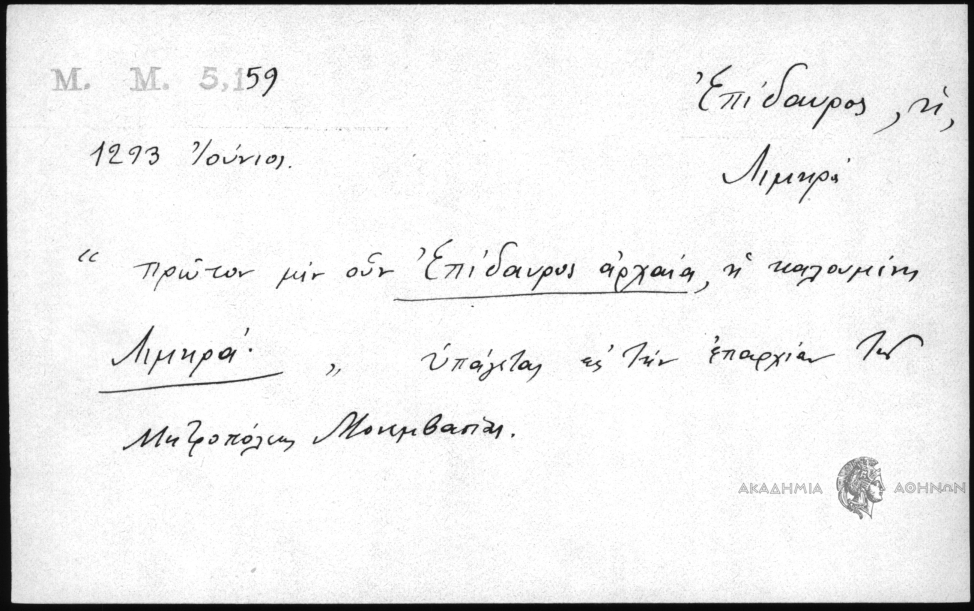 M. M. 5,159
Ἐπίδαυρος, ἡ,
Λιμηρά
1293 Ἰούνιος.
“ πρῶτον μὲν οὖν Ἐπίδαυρος ἀρχαία, ἡ καλουμένη
Λιμηρά· „ ὑπάγεται εἰς τὴν ἐπαρχίαν τῆς
Μητροπόλεως Μονεμβασίας.
ΑΚΑΔΗΜΙΑ ΑΘΗΝΩΝ